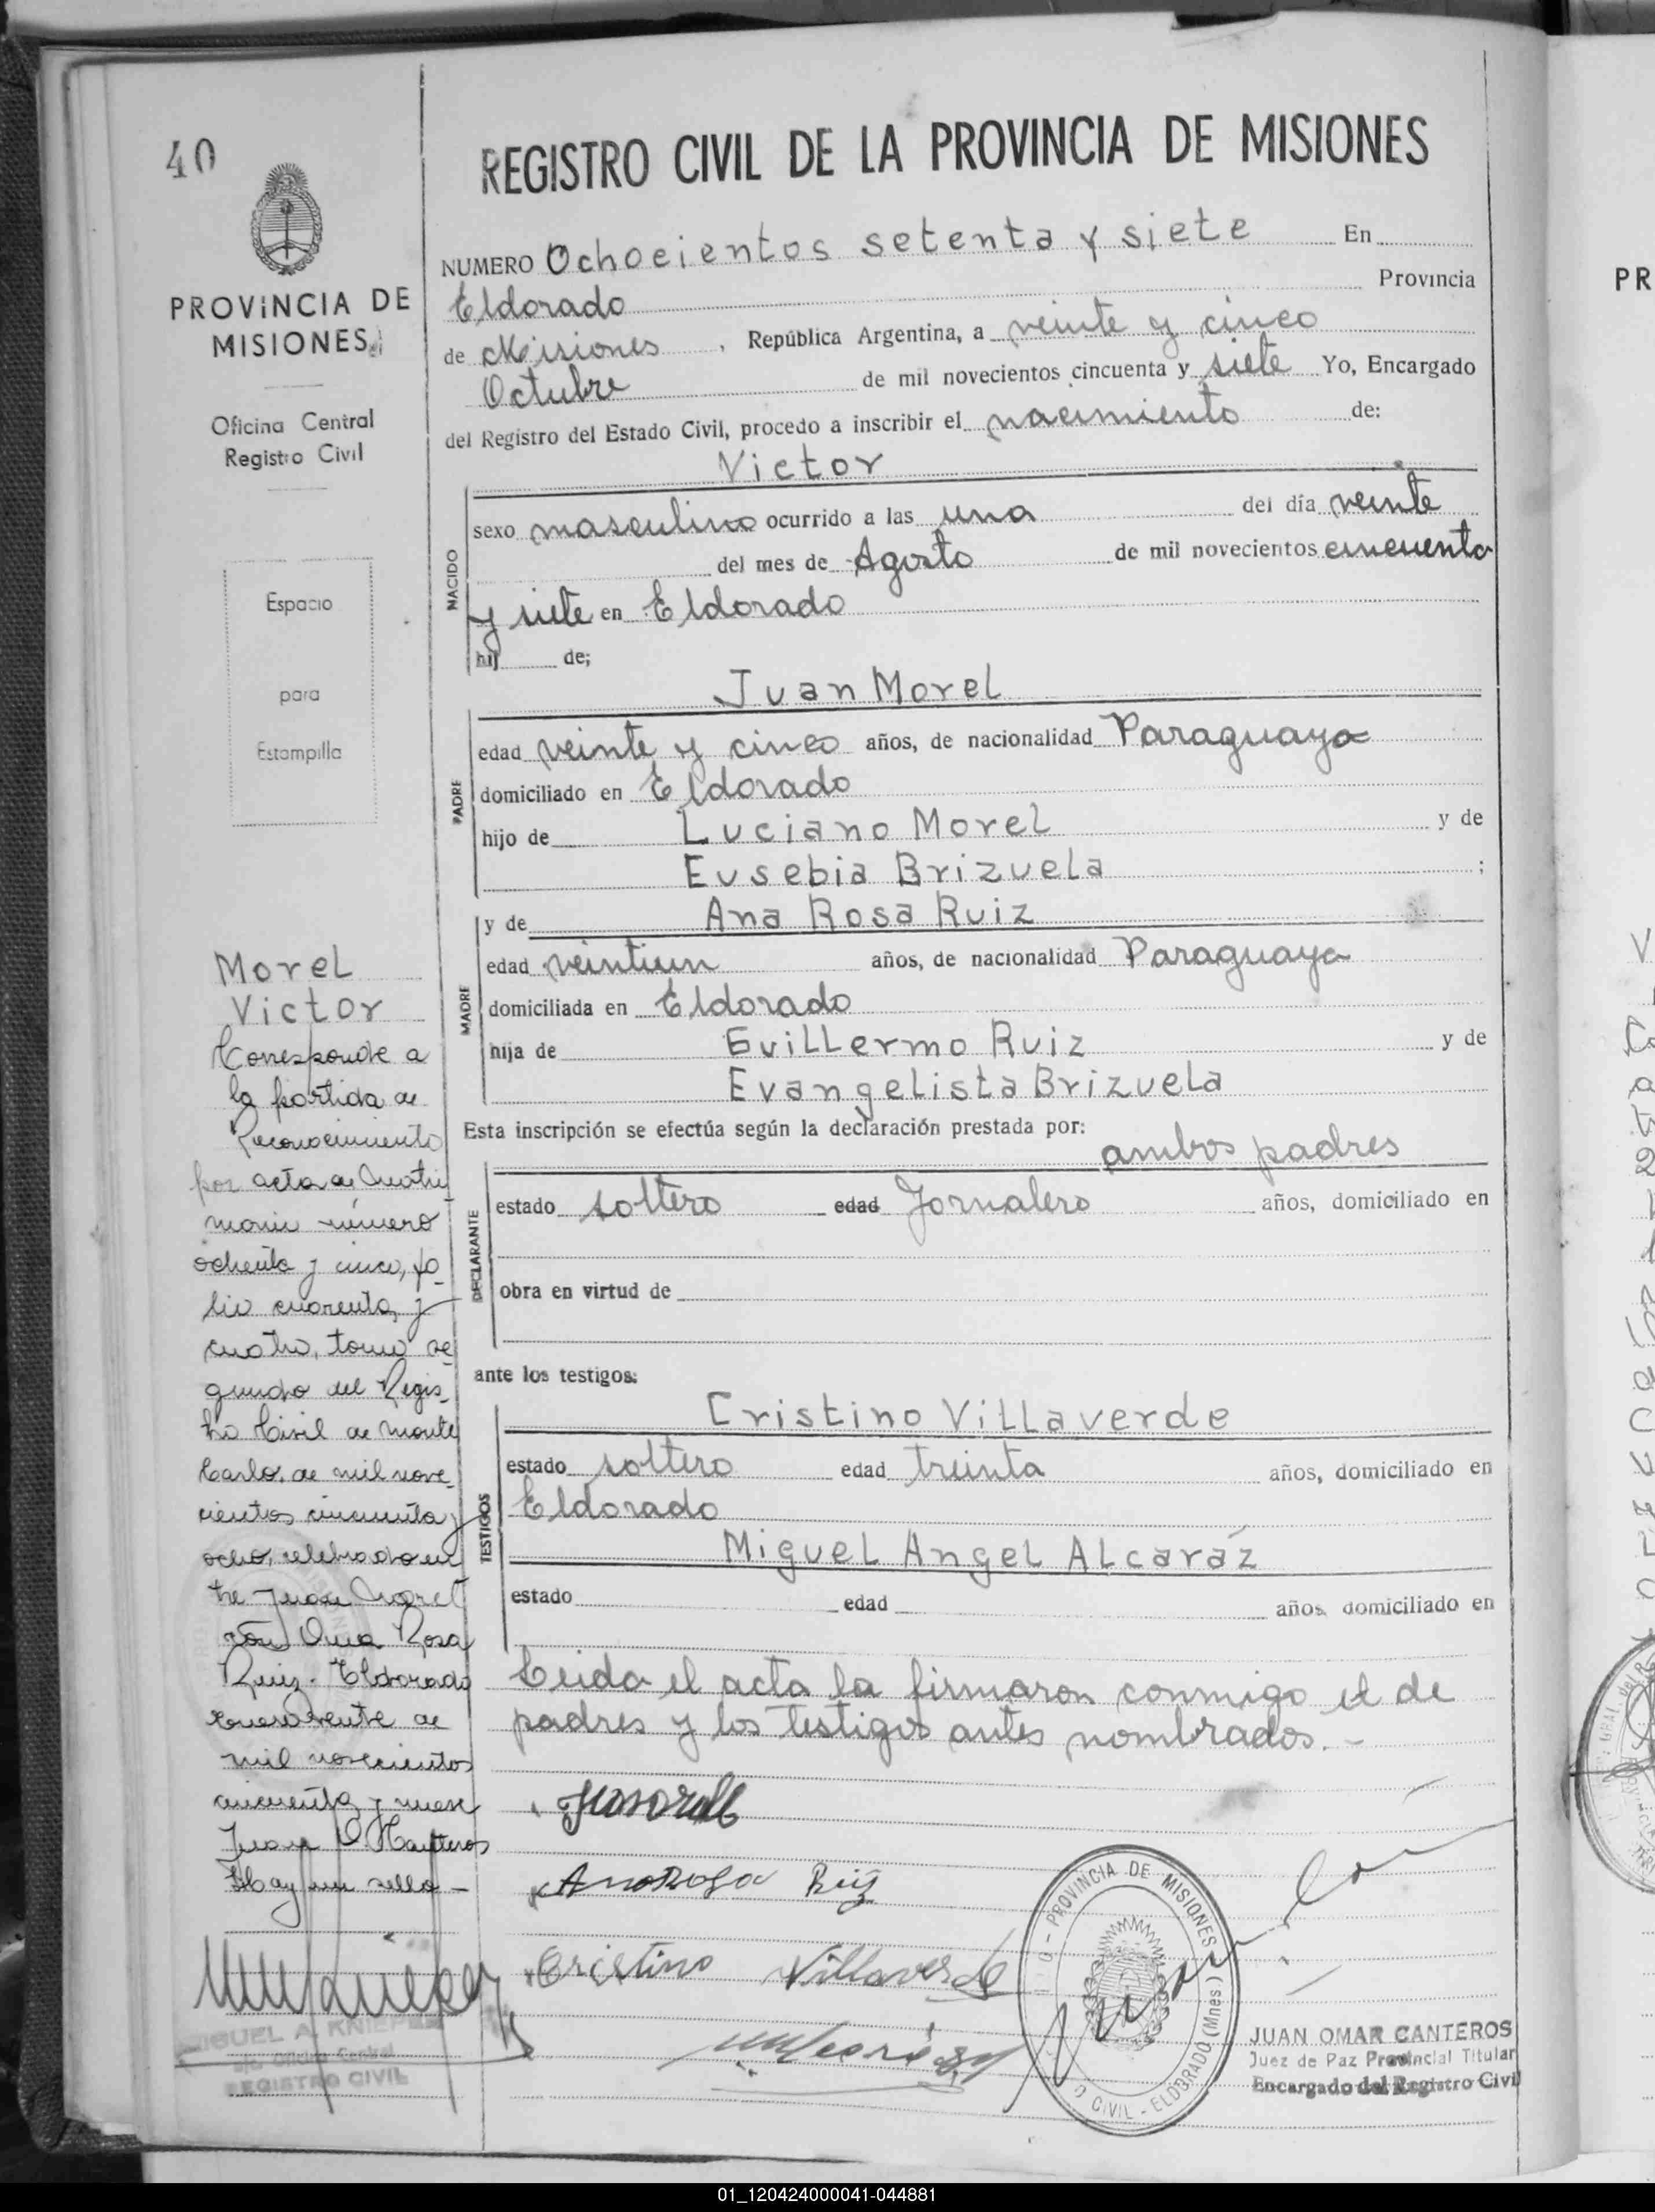 40
PROVINCIA DE
MISIONES
Oficina Central
Registro Civil
Espacio
para
Estampilla
REGISTRO CIVIL DE LA PROVINCIA DE MISIONES
NUMERO Ochocientos setenta y siete En
Eldorado Provincia
de Misiones, República Argentina, a veinte y cinco
Octubre de mil novecientos cincuenta y siete Yo, Encargado
del Registro del Estado Civil, procedo a inscribir el nacimiento de:
Victor
NACIDO
sexo masculino ocurrido a las una del día veinte
del mes de Agosto de mil novecientos cincuenta
y siete en Eldorado
hij de;
Juan Morel
PADRE
edad veinte y cinco años, de nacionalidad Paraguaya
domiciliado en Eldorado
hijo de Luciano Morel y de
Eusebia Brizuela ;
y de Ana Rosa Ruiz
MADRE
edad veintiun años, de nacionalidad Paraguaya
domiciliada en Eldorado
hija de Guillermo Ruiz y de
Evangelista Brizuela
Esta inscripción se efectúa según la declaración prestada por:
ambos padres
DECLARANTE
estado soltero edad Jornalero años, domiciliado en
obra en virtud de
ante los testigos:
Cristino Villaverde
TESTIGOS
estado soltero edad treinta años, domiciliado en
Eldorado
Miguel Angel Alcaráz
estado edad años, domiciliado en
Leida el acta la firmaron conmigo el de
padres y los testigos antes nombrados.-
Ana Rosa Ruiz
Cristino Villaverde
PROVINCIA DE MISIONES
CIVIL - ELDORADO (Mnes)
JUAN OMAR CANTEROS
Juez de Paz Provincial Titular
Encargado del Registro Civil
Morel
Victor
Corresponde a
la partida de
Reconocimiento
por acta de Matri
monio número
ochenta y cinco, fo
lio cuarenta y
cuatro, tomo se
gundo del Regis
tro Civil de Monte
Carlo, de mil nove
cientos cincuenta y
ocho, celebrado en
tre Juan Morel
con Ana Rosa
Ruiz. Eldorado
de
mil novecientos
cincuenta y nueve
Juan O. Canteros
Hay un sello -
MIGUEL A. KNIEPER
Oficina Central
REGISTRO CIVIL
PR
01_120424000041-044881